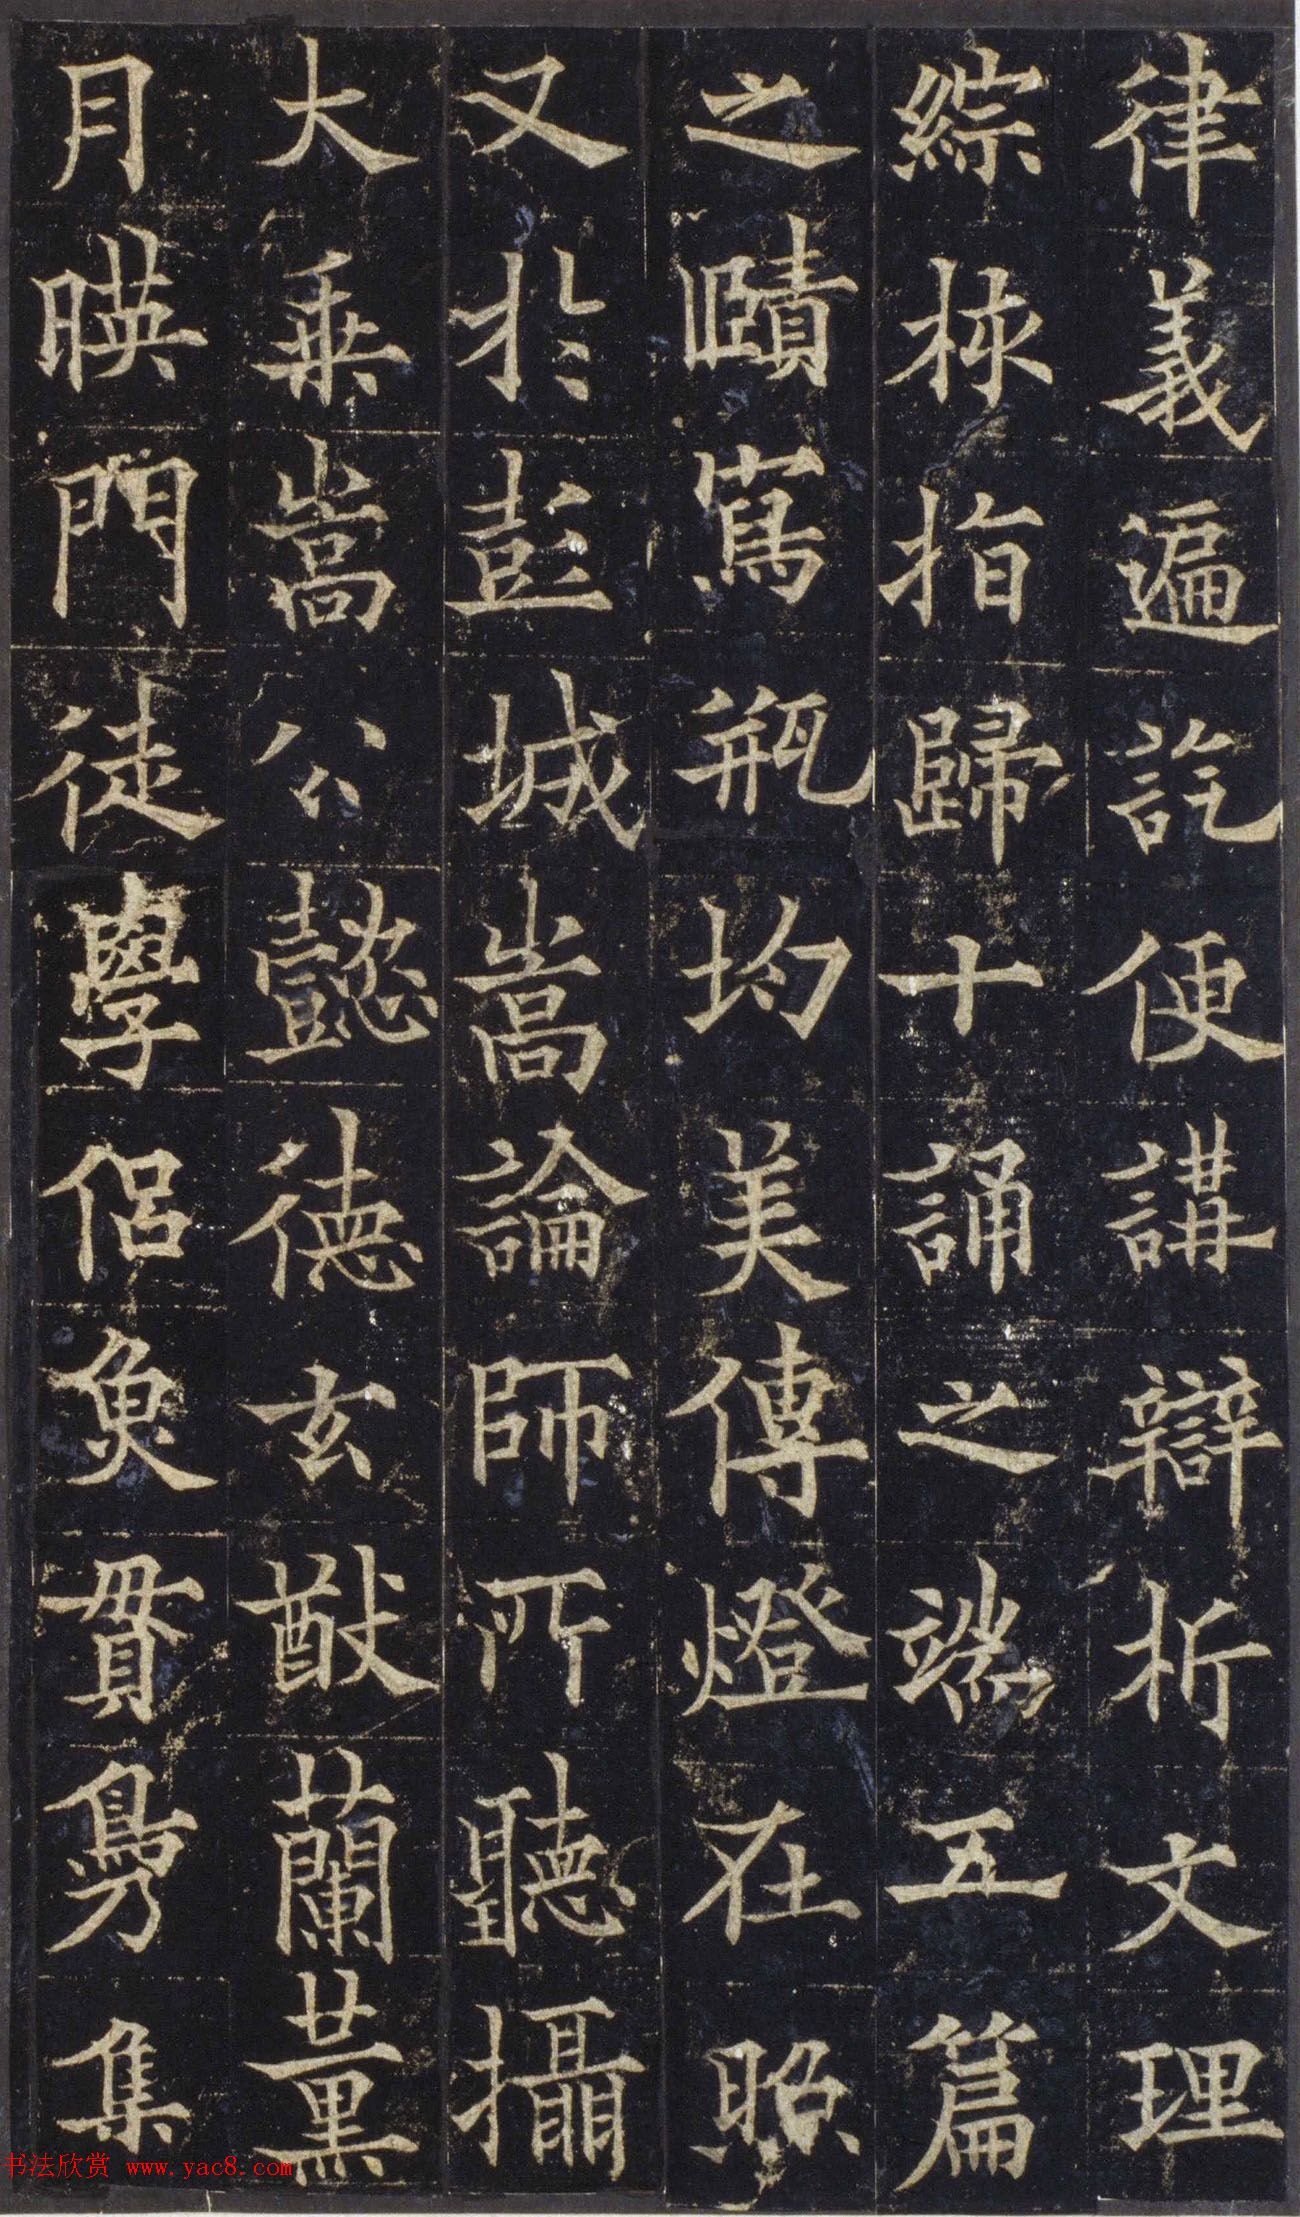 律義遍訖便講辯析文理
綜林指歸十誦之端五篇
之賾寫瓶均美傳燈在照
又於彭城嵩論師所聽攝
大乘嵩公懿德玄猷蘭薰
月暎門徒學侶魚貫鳧集
书法欣赏 www.yac8.com